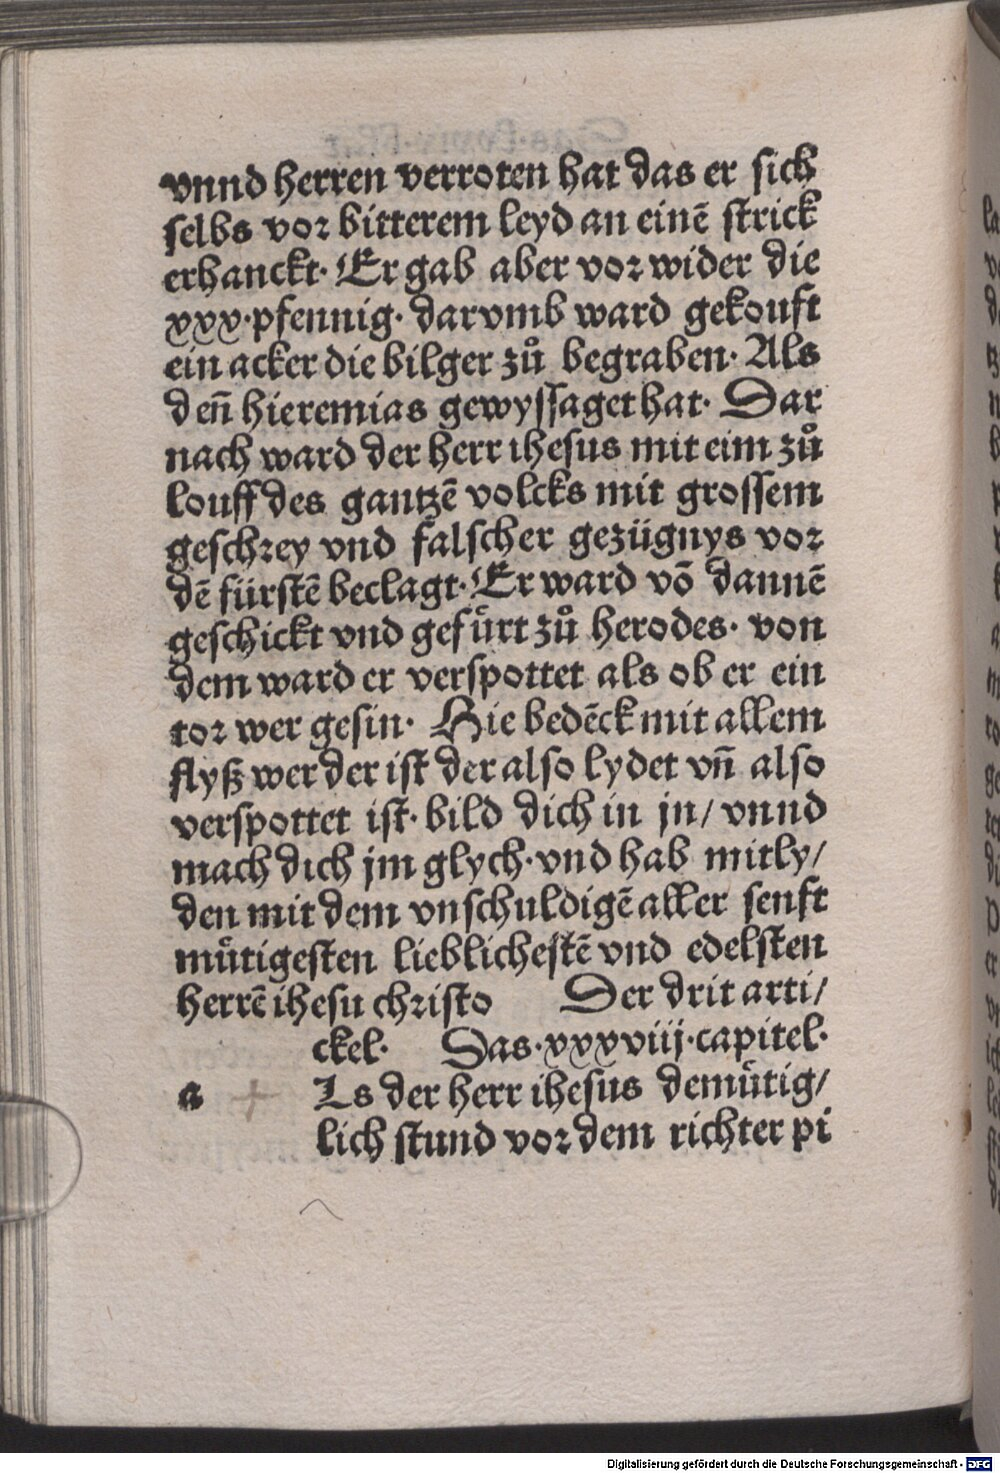 vnnd herren verroten hat das er sich
selbs vor bitterem leyd an einē strick
erhanckt· Er gab aber vor wider die
xxx·pfennig· darvmb ward gekouft
ein acker die bilger zů begraben· Als
den̄ hieremias gewyssaget hat· Dar
nach ward der herr ihesus mit eim zů
louff des gantzē volcks mit grossem
geschrey vnd falscher gezügnys vor
dē fürstē beclagt· Er ward vō dannē
geschickt vnd gefu̎rt zů herodes· von
dem ward er verspottet als ob er ein
tor wer gesin· Hie bedēck mit allem
flyß wer der ist der also lydet vn̄ also
verspottet ist· bild dich in jn/ vnnd
mach dich jm glych·vnd hab mitly/
den mit dem vnschuldigē aller senft
mu̎tigesten lieblichestē vnd edelsten
herrē ihesu christo Der drit arti/
ckel· Das·xxxviij·capitel·
a Ls der herr ihesus demu̎tig/
lich stund vor dem richter pi
Digitalisierung gefördert durch die Deutsche Forschungsgemeinschaft - DFG